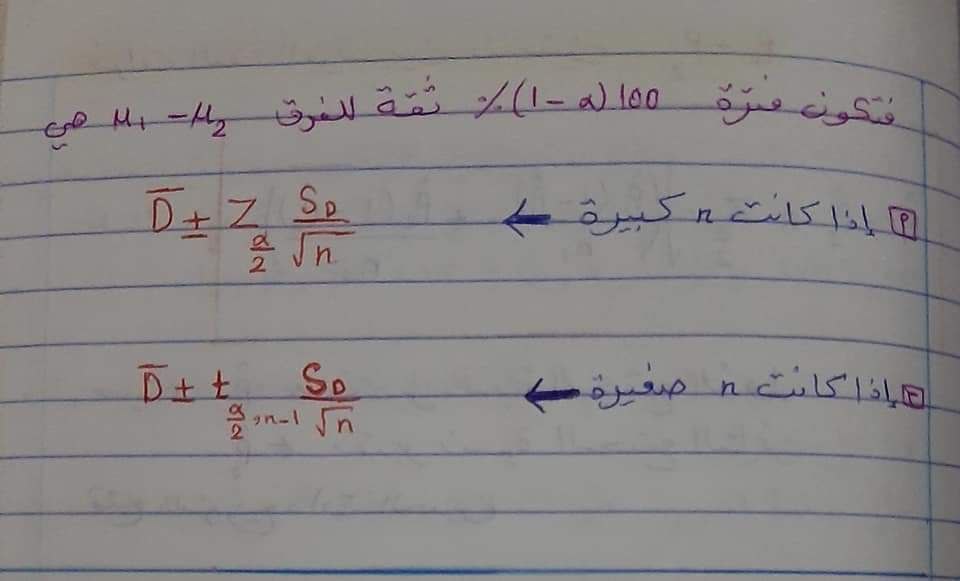 فتكون فترة 100(1-α)% ثقة للفرق μ₁-μ₂ هي
1 إذا كانت n كبيرة ← D̄ ± Z_{α/2} S_D/√n
2 إذا كانت n صغيرة ← D̄ ± t_{α/2, n-1} S_D/√n